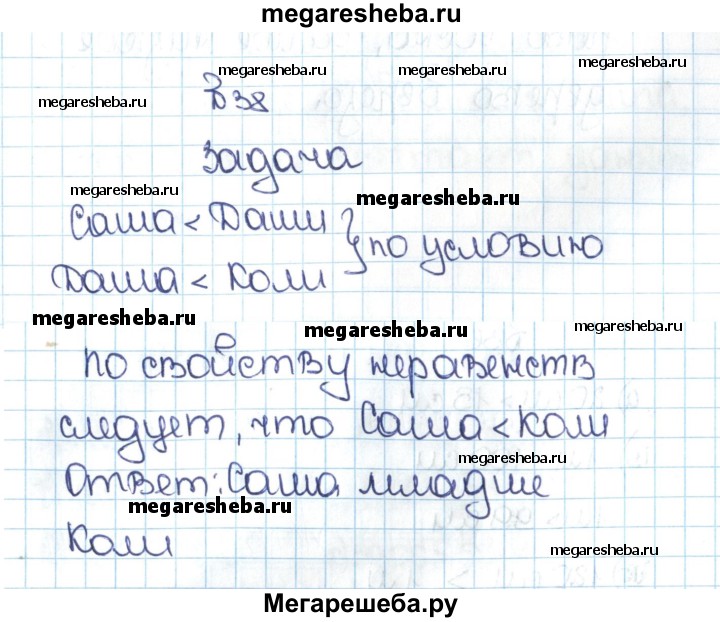 megaresheba.ru
megaresheba.ru
megaresheba.ru
megaresheba.ru
38
Задача
megaresheba.ru
megaresheba.ru
Саша < Даши } по условию
Даша < Коли
megaresheba.ru
megaresheba.ru
megaresheba.ru
по свойству неравенств
следует, что Саша < Коли
megaresheba.ru
Ответ: Саша младше
megaresheba.ru
Коли
megaresheba.ru
Мегарешеба.ру